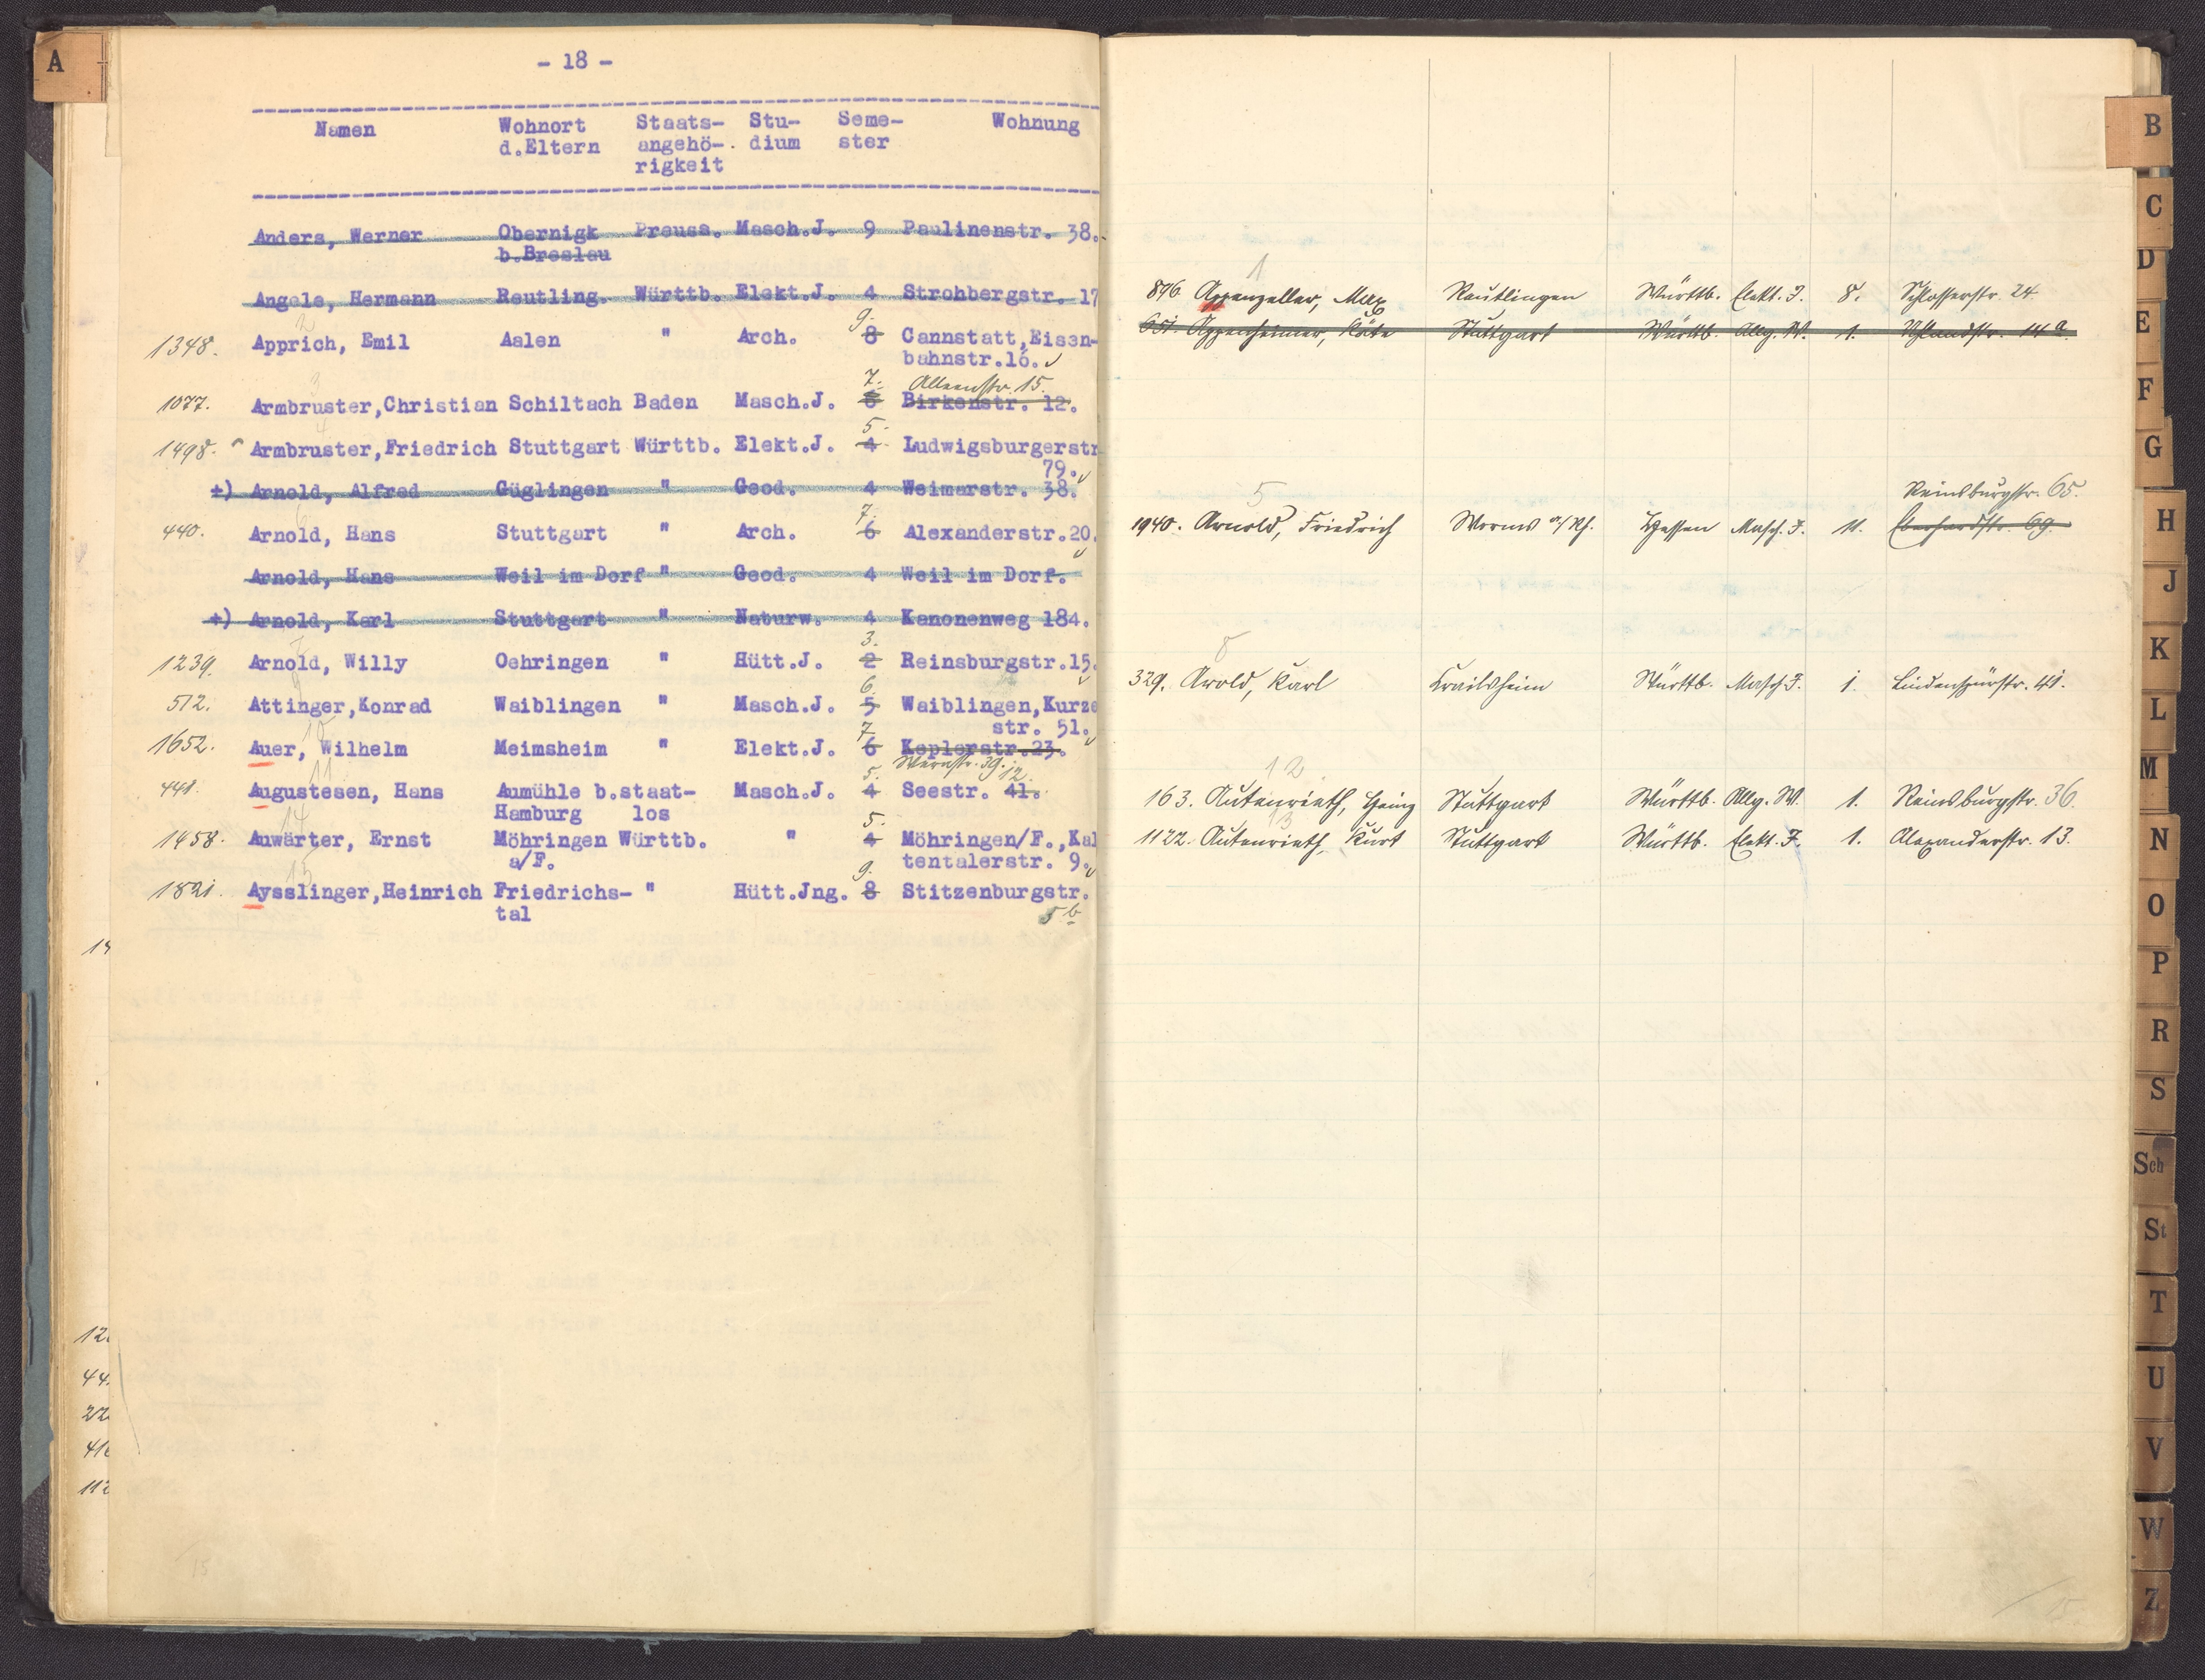 A
- 18 -
Namen Wohnort Staats- Stu- Seme- Wohnung
d.Eltern angehö-. dium ster
rigkeit
Anders, Werner Obernigk Preuss. Masch.J. 9 Paulinenstr. 38.
b.Breslau
Angele, Hermann Reutling. Württb. Elekt.J. 4 Strohbergstr. 17
2 9.
1348. Apprich, Emil Aalen " Arch. 8 Cannstatt,Eisen-
bahnstr.16.
3 7. Alleenstr. 15.
1077. Armbruster,Christian Schiltach Baden Masch.J. 6 Birkenstr. 12.
4 5.
1498. Armbruster,Friedrich Stuttgart Württb. Elekt.J. 4 Ludwigsburgerstr
79.
±) Arnold, Alfred Güglingen " Geod. 4 Weimarstr. 38.
6 7.
440. Arnold, Hans Stuttgart " Arch. 6 Alexanderstr.20.
Arnold, Hans Weil im Dorf " Geod. 4 Weil im Dorf.
+) Arnold, Karl Stuttgart " Naturw. 4 Kanonenweg 184.
7 3.
1239. Arnold, Willy Oehringen " Hütt.J. 2 Reinsburgstr.15.
9 6.
512. Attinger,Konrad Waiblingen " Masch.J. 5 Waiblingen,Kurze
str. 51.
10 7
1652. Auer, Wilhelm Meimsheim " Elekt.J. 6 Keplerstr.23.
11 5. 39. 12.
441. Augustesen, Hans Aumühle b.staat- Masch.J. 4 Seestr. 41.
Hamburg los
14 5.
1458. Auwärter, Ernst Möhringen Württb. " 4 Möhringen/F.,Kal
a/F. tentalerstr. 9.
15 9.
1821. Aysslinger,Heinrich Friedrichs- " Hütt.Jng. 8 Stitzenburgstr.
tal 5 b
14
12
44
22
41
112
15
1
896 Appenzeller, Max Reutlingen Württb. Elekt. J. 8. Schlosserstr. 24.
651. Appenheimer, Käte Stuttgart Württb. Allg. W. 1. Uhlandstr. 14 a.
5 Reinsburgstr. 65.
1940. Arnold, Friedrich Worms a/Rh. Hessen Masch. J. 11. Eberhardstr. 69.
8
329. Arold, Karl Crailsheim Württb. Masch J. 1. Lindenspürstr. 41.
12
163. Autenrieth, Heinz Stuttgart Württb. Allg. W. 1. Reinsburgstr. 36.
13
1122. Autenrieth, Kurt Stuttgart Württb. Elekt. J. 1. Alexanderstr. 13.
15.
B
C
D
E
F
G
H
J
K
L
M
N
O
P
R
S
Sch
St
T
U
V
W
Z